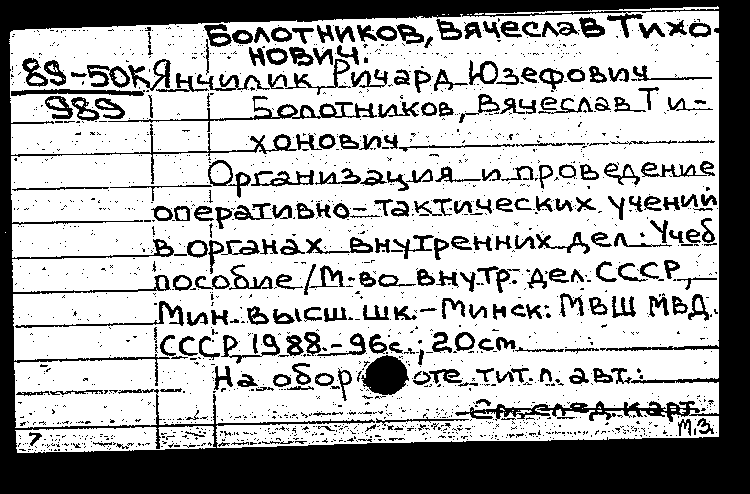 Болотников, Вячеслав Тихо-
нович.
89-50К Янчилик, Ричард Юзефович
989 Болотников, Вячеслав Ти-
хонович.
Организация и проведение
оперативно-тактических учений
в органах внутренних дел: Учеб
пособие/М-во внутр. дел СССР,
Мин. высш. шк.-Минск: МВШ МВД
СССР, 1988.-96с.; 20см.
На обороте тит. л. авт.:
См. след. карт.
7 М.З.